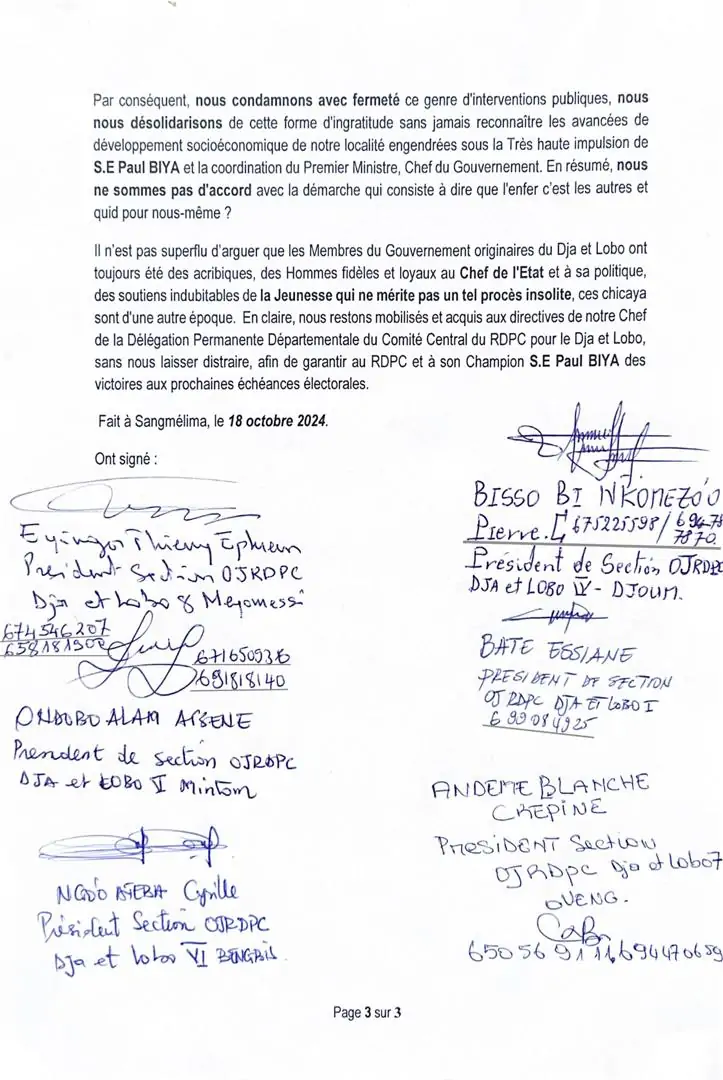 Par conséquent, nous condamnons avec fermeté ce genre d'interventions publiques, nous
nous désolidarisons de cette forme d'ingratitude sans jamais reconnaître les avancées de
développement socioéconomique de notre localité engendrées sous la Très haute impulsion de
S.E Paul BIYA et la coordination du Premier Ministre, Chef du Gouvernement. En résumé, nous
ne sommes pas d'accord avec la démarche qui consiste à dire que l'enfer c'est les autres et
quid pour nous-même ?
Il n'est pas superflu d'arguer que les Membres du Gouvernement originaires du Dja et Lobo ont
toujours été des acribiques, des Hommes fidèles et loyaux au Chef de l'Etat et à sa politique,
des soutiens indubitables de la Jeunesse qui ne mérite pas un tel procès insolite, ces chicaya
sont d'une autre époque. En claire, nous restons mobilisés et acquis aux directives de notre Chef
de la Délégation Permanente Départementale du Comité Central du RDPC pour le Dja et Lobo,
sans nous laisser distraire, afin de garantir au RDPC et à son Champion S.E Paul BIYA des
victoires aux prochaines échéances électorales.
Fait à Sangmélima, le 18 octobre 2024.
Ont signé :
Eyinga Thierry Ephrem
President Section OJRDPC
Dja et Lobo 8 Meyomessi
674546207
658181902
671650936
691818140
ONDOBO ALAM ARSENE
President de section OJRDPC
DJA et LOBO V Mintom
NGO'O Cyrille
Président Section OJRDPC
Dja et Lobo VI BENGBIS
BISSO BI NKOMEZO'O
Pierre. 675225598/
Président de Section OJRDPC
DJA et LOBO IV - DJOUM.
BATE ESSIANE
PRESIDENT DE SECTION
OJRDPC DJA ET LOBO I
699084925
ANDEME BLANCHE
CREPINE
PRESIDENT Section
OJRDPC Dja et Lobo 7
OVENG.
650569111, 694470659
Page 3 sur 3